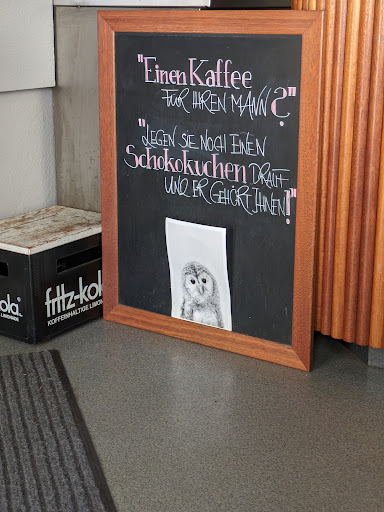 "Einen Kaffee
FÜR IHREN MANN?"
"LEGEN SIE NOCH EINEN
Schokokuchen DRAUF
UND ER GEHÖRT IHNEN!"
ola.
LIMONADE
fritz-kola
KOFFEINHALTIGE LIMO